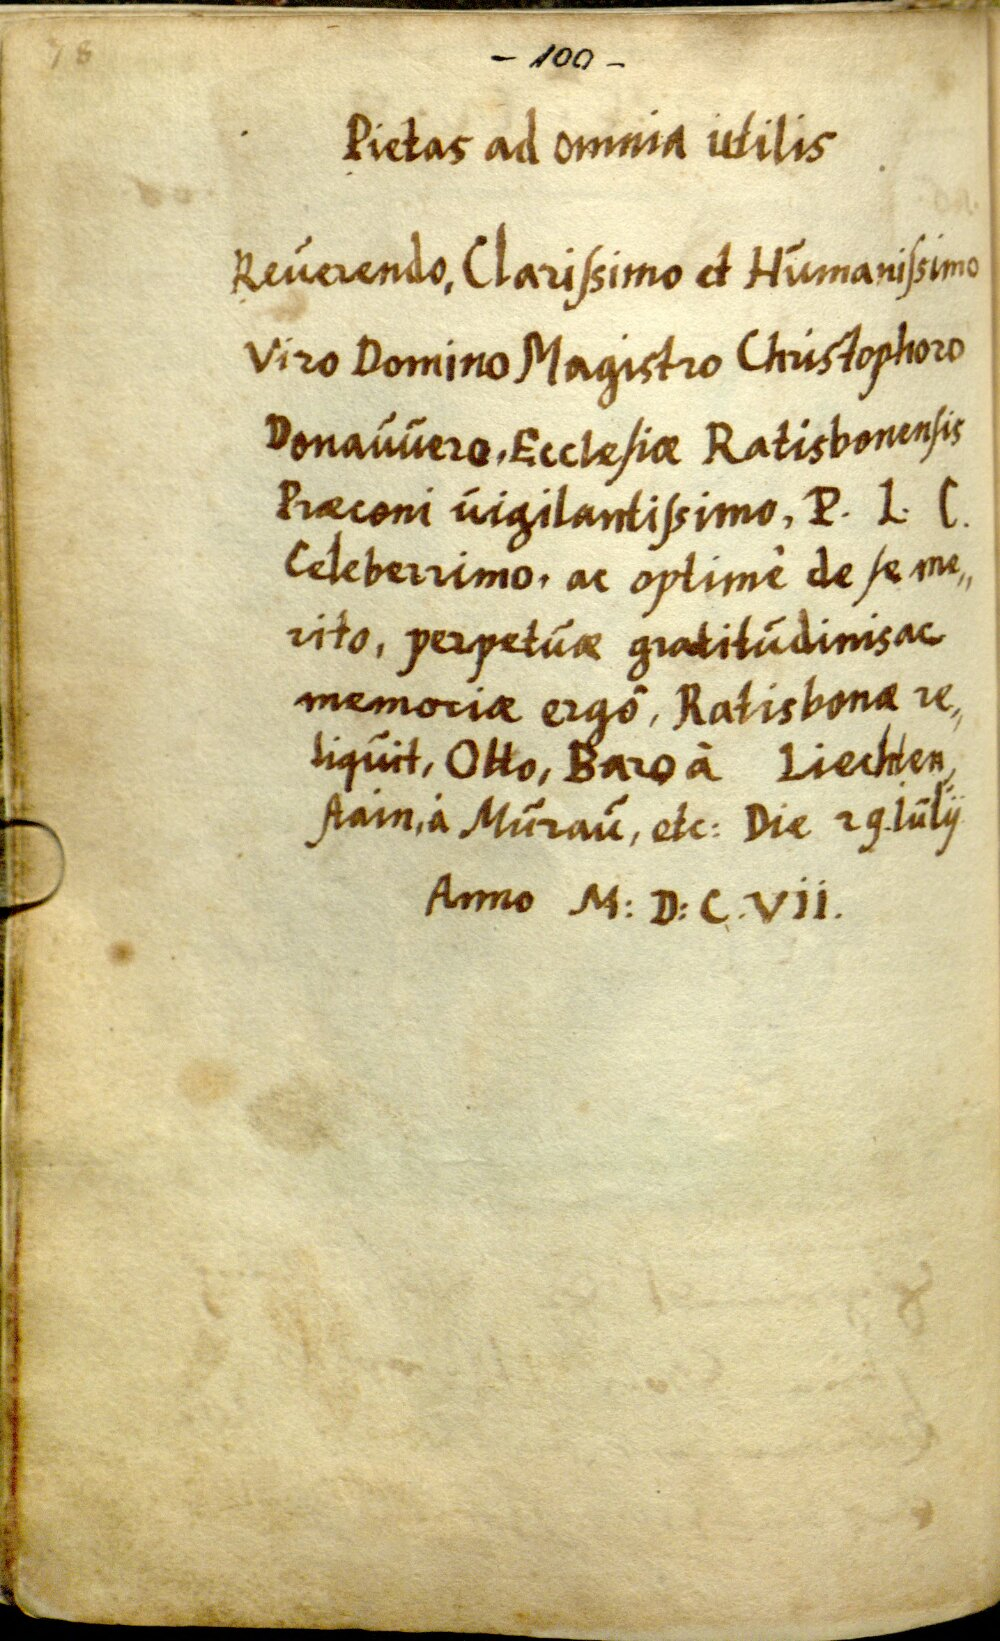 78
- 100 -
Pietas ad omnia utilis
Reuerendo, Clariſsimo et Humaniſsimo
Viro Domino Magistro Christophoro
Donauuero, Eccleſiæ Ratisbonenſis
Præconi uigilantiſsimo, P. L. C.
Celeberrimo, ac optimè de ſe me„
rito, perpetuæ gratitudinis ac
memoriæ ergô, Ratisbonæ re„
liquit, Otto, Baro à Liechten„
ſtain, à Murau, etc: Die 29. Iulij
Anno M: D: C. VII.